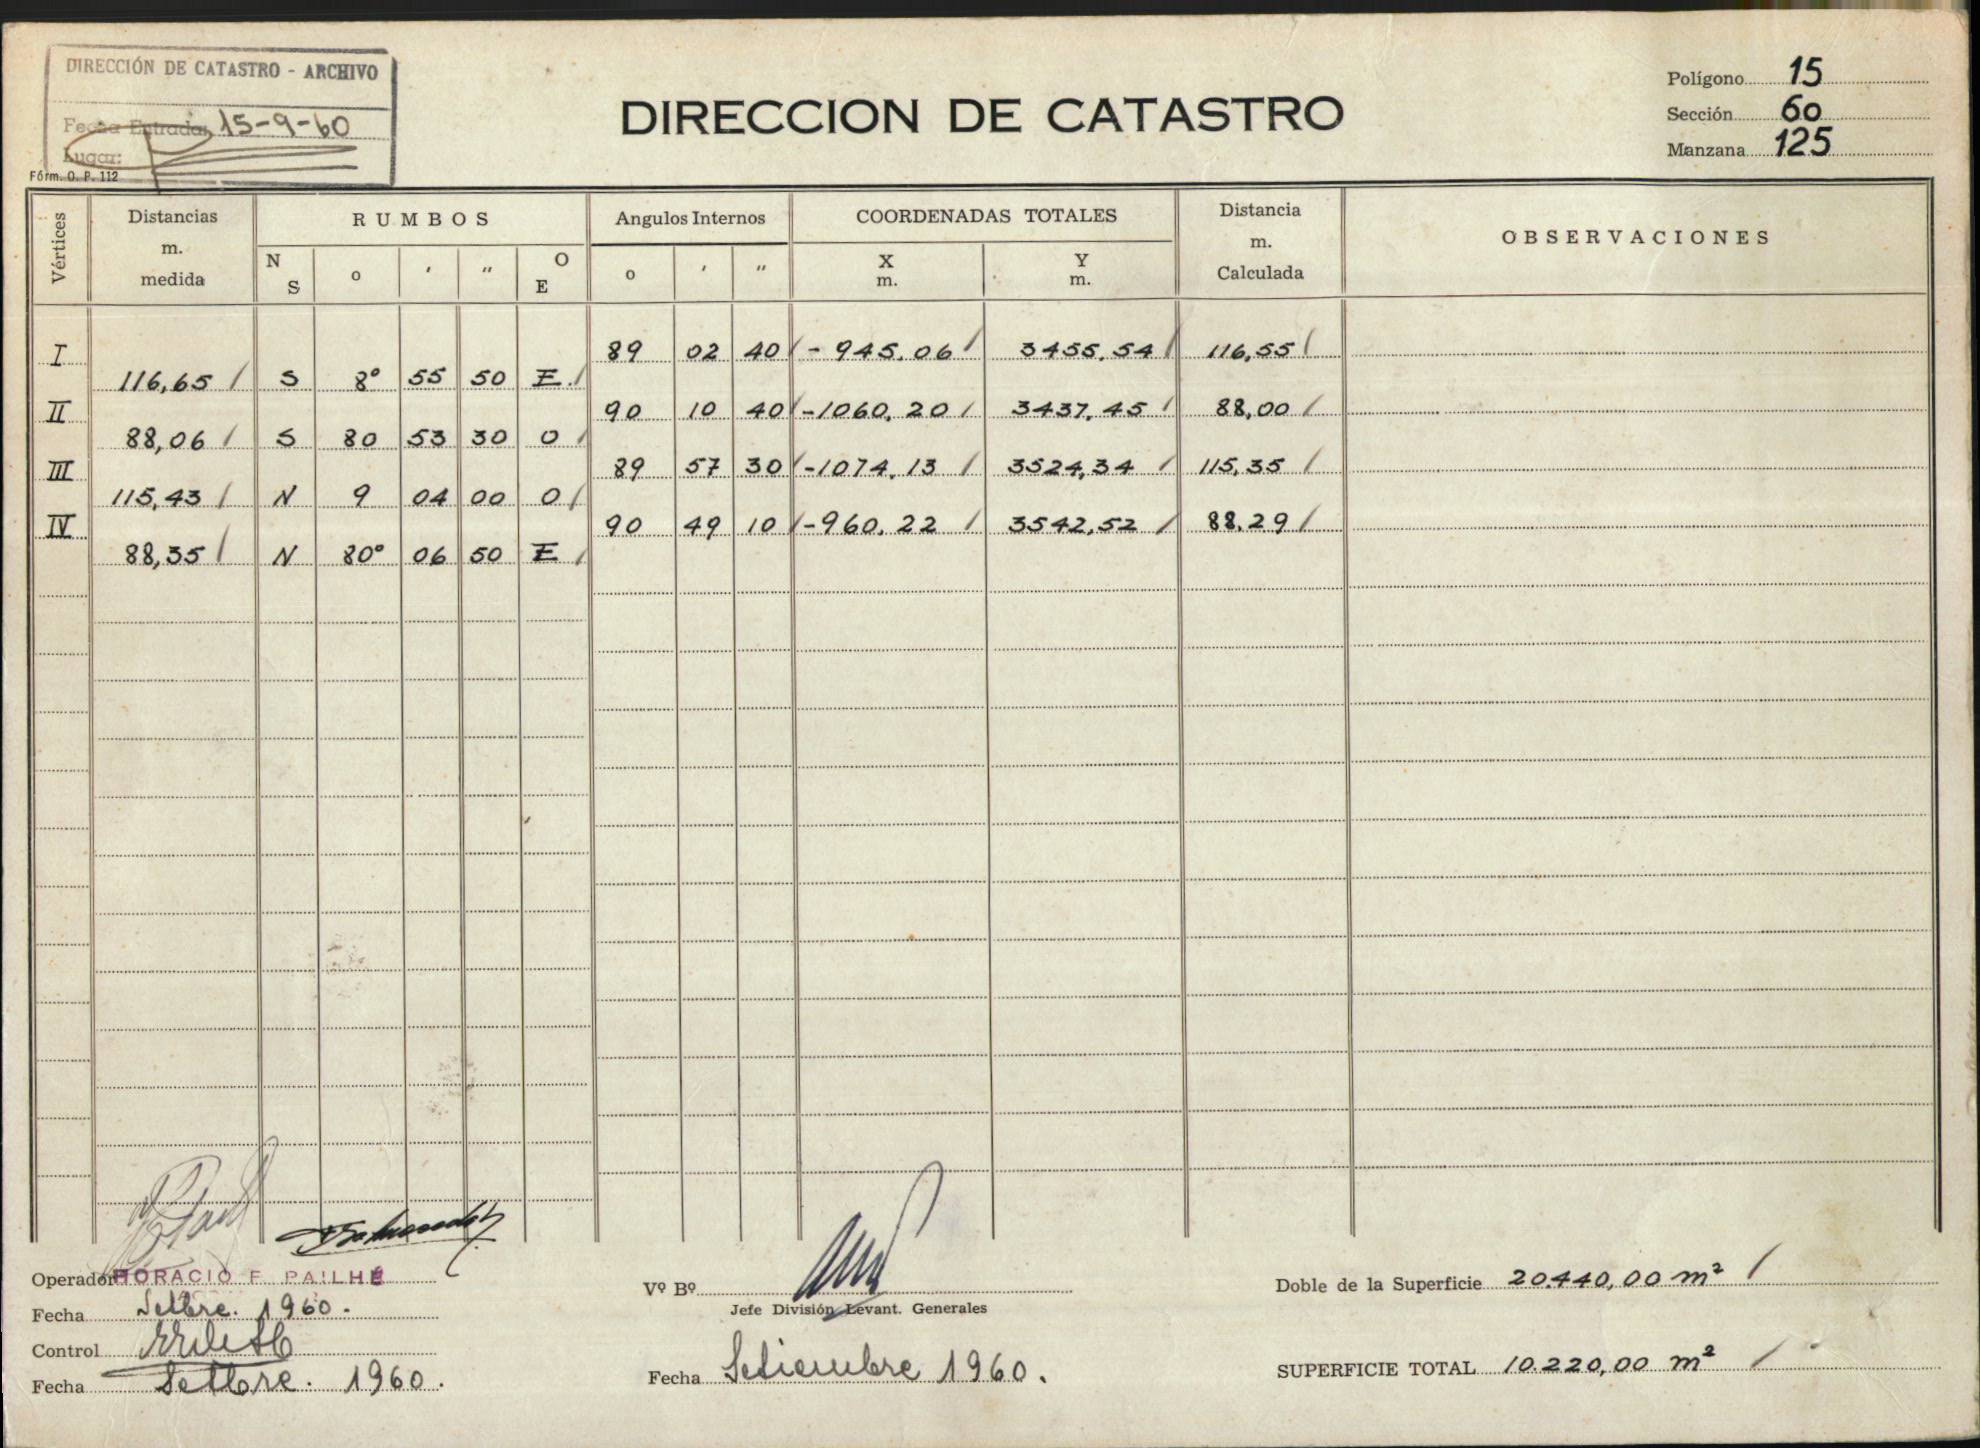 DIRECCIÓN DE CATASTRO - ARCHIVO
Fecha Entrada: 15-9-60
Lugar:
Fórm. O. P. 112
DIRECCION DE CATASTRO
Polígono 15
Sección 60
Manzana 125
Vértices Distancias m. medida RUMBOS Angulos Internos COORDENADAS TOTALES Distancia m. Calculada OBSERVACIONES
N S o ′ ″ O E o ′ ″ X m. Y m.
I 89 02 40 -945.06 3455.54 116,55
116,65 S 8° 55 50 E
II 90 10 40 -1060.20 3437.45 88,00
88,06 S 80 53 30 O
III 89 57 30 -1074.13 3524,34 115,35
115,43 N 9 04 00 O
IV 90 49 10 -960.22 3542,52 88.29
88,35 N 80° 06 50 E
Operador HORACIO F. PAILHÉ
Fecha Setbre. 1960.
Control
Fecha Setbre. 1960.
Vº Bº
Jefe División Levant. Generales
Fecha Setiembre 1960.
Doble de la Superficie 20.440,00 m²
SUPERFICIE TOTAL 10.220,00 m²